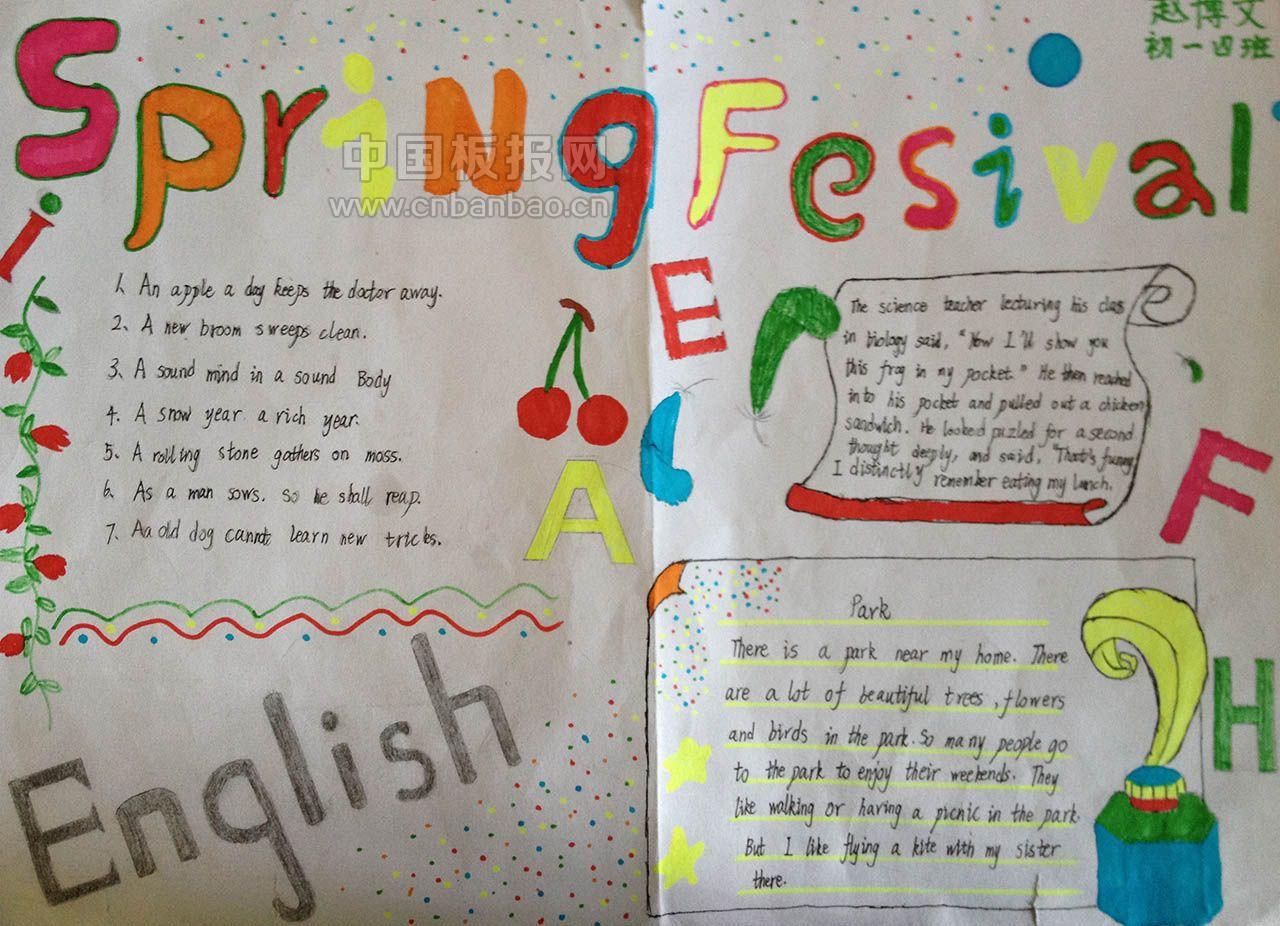 Spring Fesival
赵博文
初一四班
中国板报网
www.cnbanbao.cn
i
1、An apple a day keeps the doctor away.
2、A new broom sweeps clean.
3、A sound mind in a sound Body
4、A snow year a rich year.
5、A rolling stone gathers on moss.
6、As a man sows. So he shall reap.
7、Aa old dog cannot learn new tricks.
E
A
F
H
The science teacher lecturing his class
in biology said, "Now I'll show you
this frog in my pocket." He then reached
into his pocket and pulled out a chicken
sandwich. He looked puzled for a second
thought deeply, and said, "That's funny,
I distinctly remember eating my lunch.
English
Park
There is a park near my home. There
are a lot of beautiful trees, flowers
and birds in the park. So many people go
to the park to enjoy their weekends. They
like walking or having a picnic in the park.
But I like flying a kite with my sister
there.